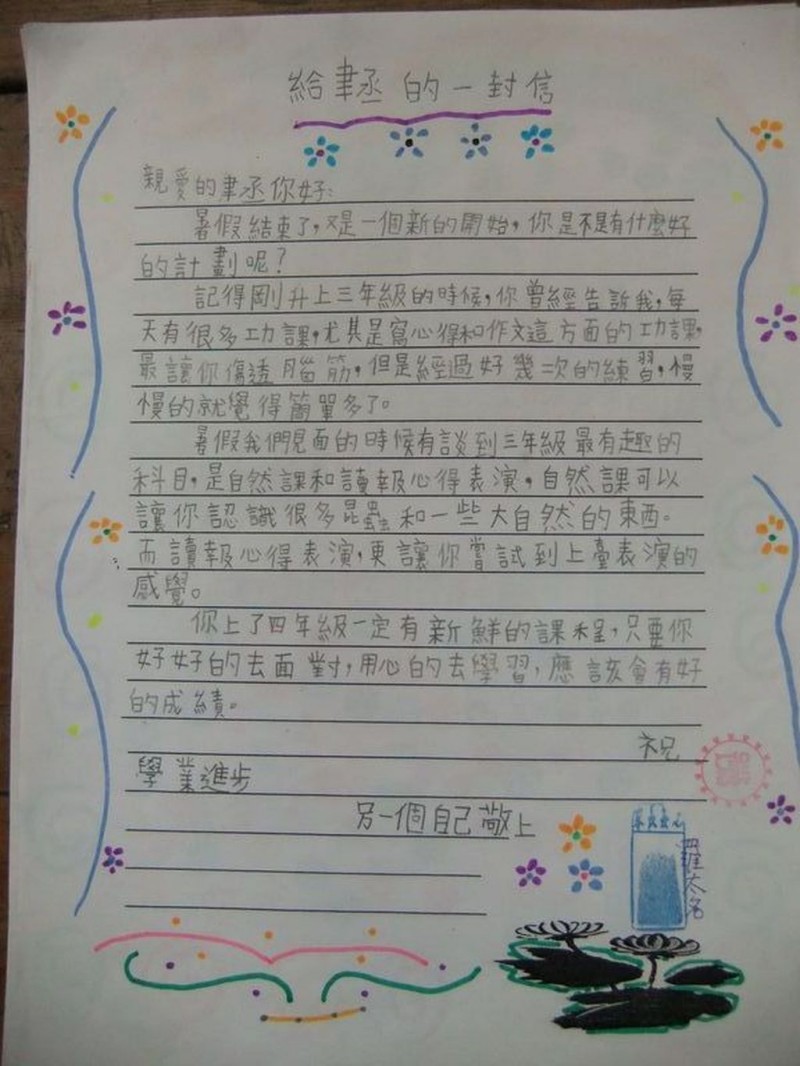 給聿丞的一封信
親愛的聿丞你好：
暑假結束了，又是一個新的開始，你是不是有什麼好
的計劃呢？
記得剛升上三年級的時候，你曾經告訴我，每
天有很多功課，尤其是寫心得和作文這方面的功課，
最讓你傷透腦筋，但是經過好幾次的練習，慢
慢的就覺得簡單多了。
暑假我們見面的時候有談到三年級最有趣的
科目，是自然課和讀報心得表演，自然課可以
讓你認識很多昆蟲和一些大自然的東西。
而讀報心得表演，更讓你嘗試到上臺表演的
感覺。
你上了四年級一定有新鮮的課程，只要你
好好的去面對，用心的去學習，應該會有好
的成績。
祝
學業進步
另一個自己敬上